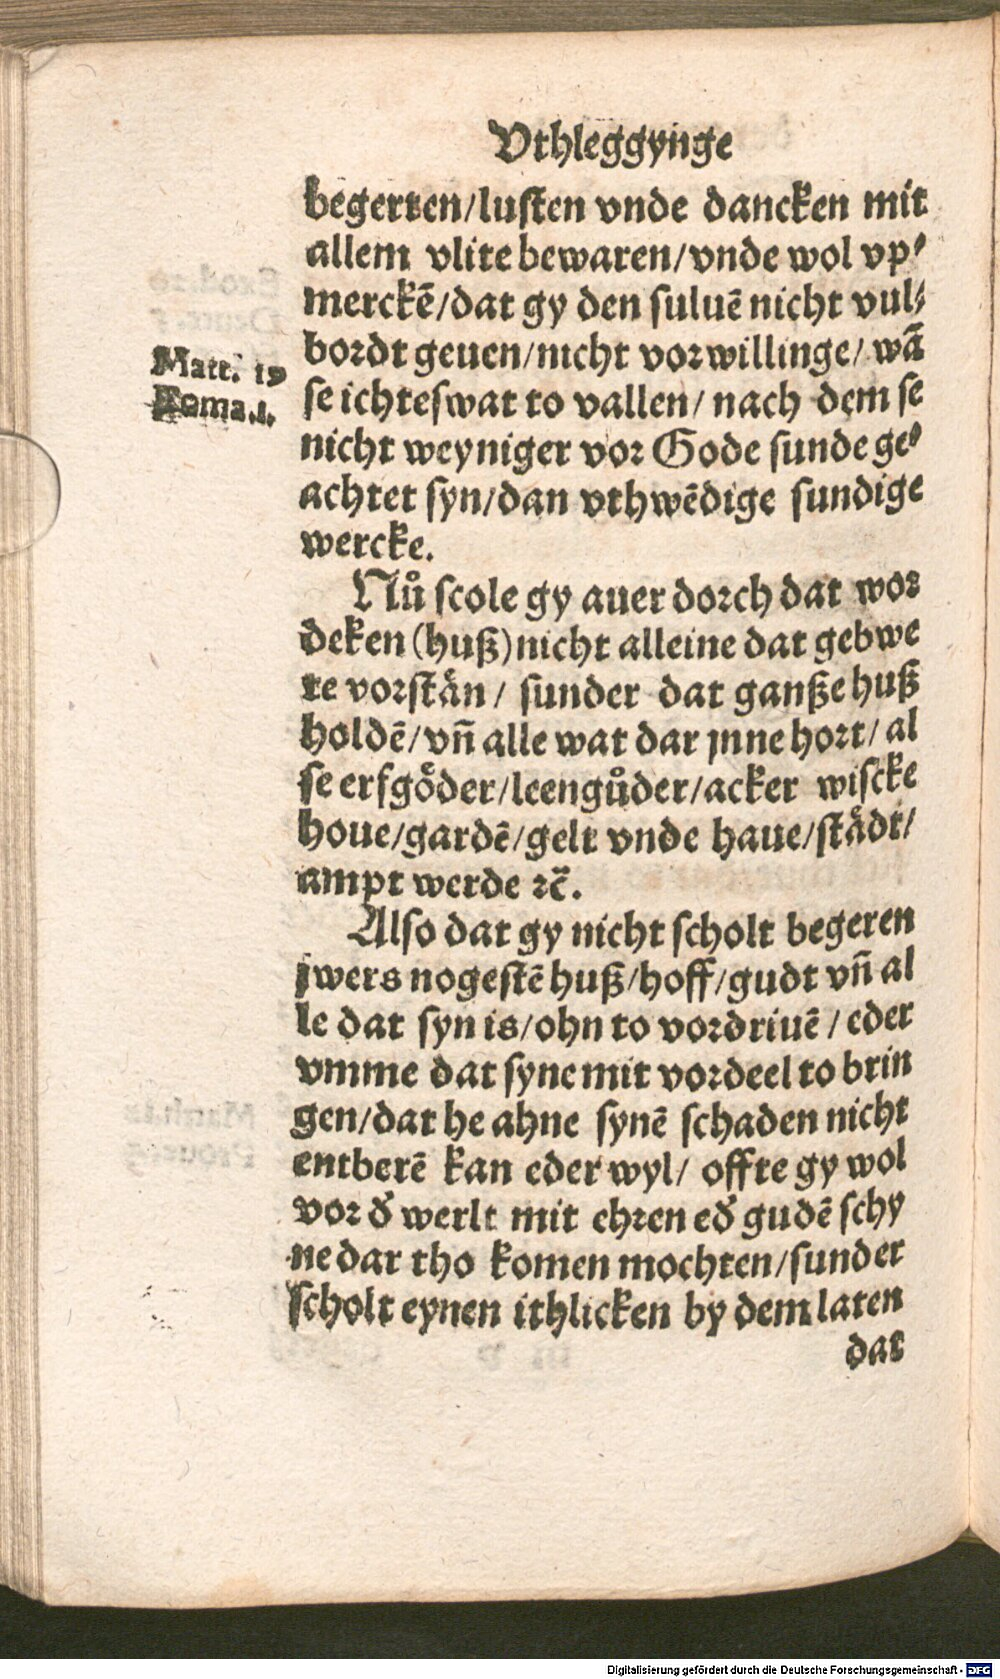 Vthleggynge
begerten/lusten vnde dancken mit
allem vlite bewaren/vnde wol vp⸗
merckẽ/dat gy den suluẽ nicht vul⸗
bordt geuen/nicht vorwillinge/ wã
Matt. 19
se ichteswat to vallen/ nach dem se
Roma.1.
nicht weyniger vor Gode sunde ge⸗
achtet syn/dan vthwẽdige sundige
wercke.
Nů scole gy auer dorch dat wor
deken (huß) nicht alleine dat gebwe
te vorstån / sunder dat ganße huß
holdẽ/vñ alle wat dar jnne hort/ al
se erfgoͤder/leengůder/acker wiscke
houe/gardẽ/gelt vnde haue/städt/
ampt werde ꝛc̃.
Also dat gy nicht scholt begeren
jwers nogestẽ huß/hoff/gudt vñ al
le dat syn is/ohn to vordriuẽ / eder
vmme dat syne mit vordeel to brin
gen/dat he ahne synẽ schaden nicht
entberẽ kan eder wyl/ offte gy wol
vor d̕ werlt mit ehren ed̕ gudẽ schy
ne dar tho komen mochten/sunder
scholt eynen ithlicken by dem laten
dat
Digitalisierung gefördert durch die Deutsche Forschungsgemeinschaft - DFG